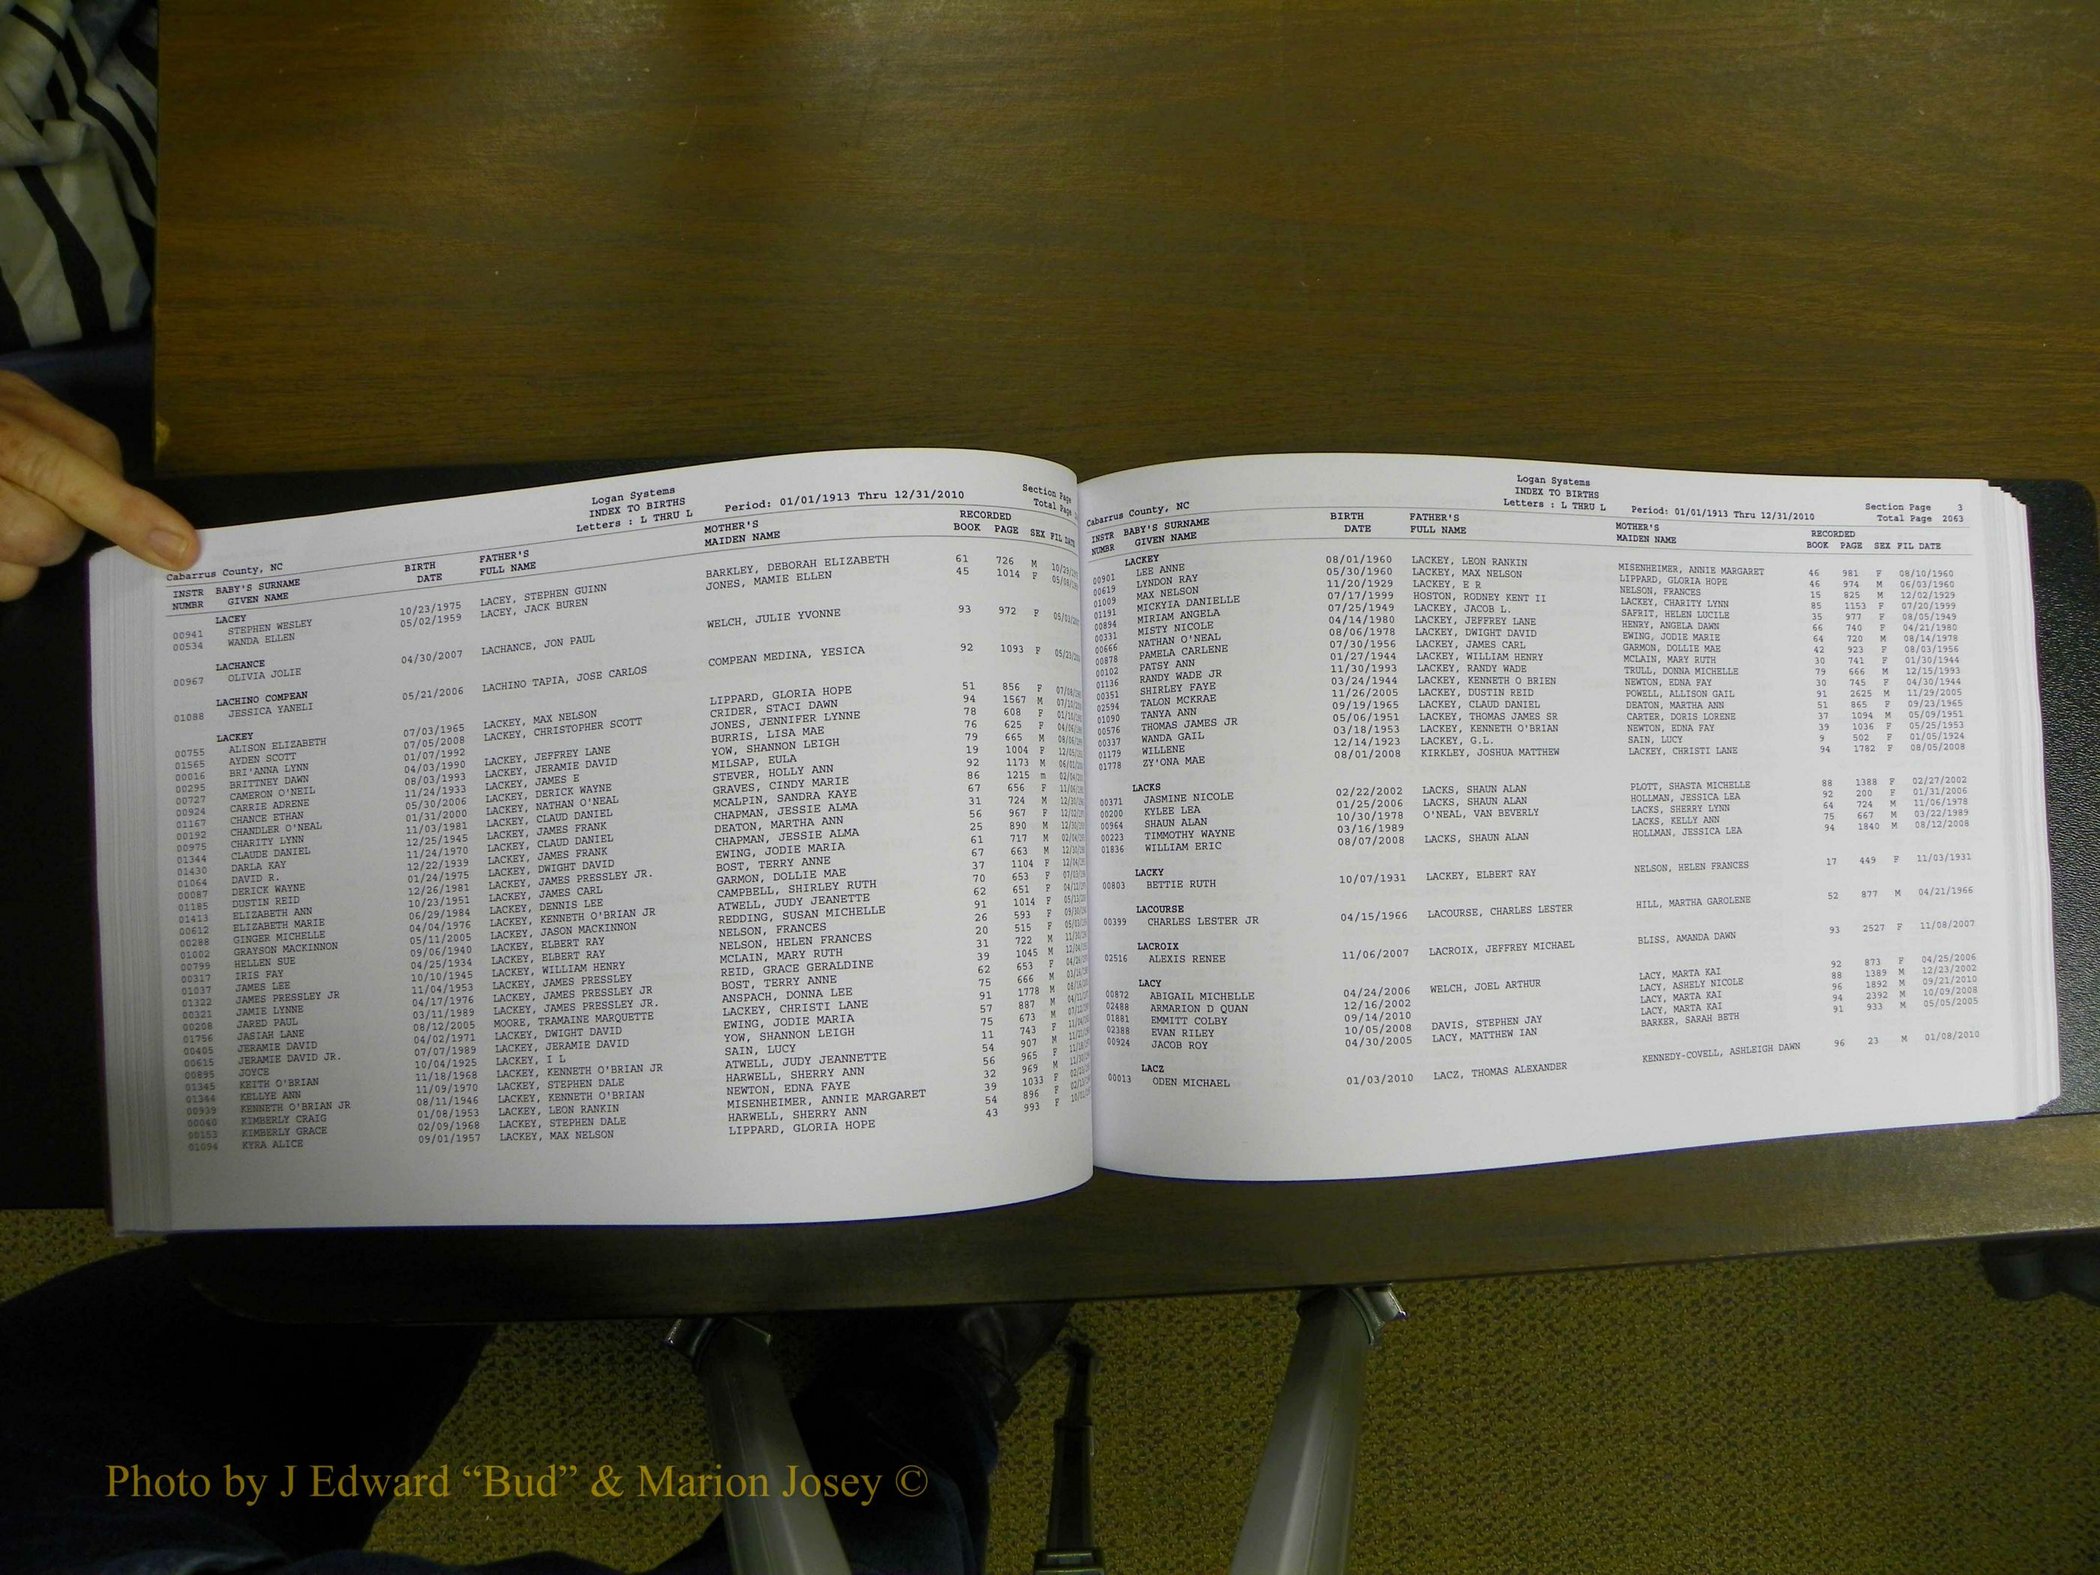 Logan Systems
INDEX TO BIRTHS
Letters : L THRU L
Period: 01/01/1913 Thru 12/31/2010
Section Page
Total Page
Cabarrus County, NC
INSTR BABY'S SURNAME BIRTH FATHER'S MOTHER'S RECORDED
NUMBR GIVEN NAME DATE FULL NAME MAIDEN NAME BOOK PAGE SEX FIL DATE
LACEY
00941 STEPHEN WESLEY 10/23/1975 LACEY, STEPHEN GUINN BARKLEY, DEBORAH ELIZABETH 61 726 M
00534 WANDA ELLEN 05/02/1959 LACEY, JACK BUREN JONES, MAMIE ELLEN 45 1014 F
LACHANCE
00967 OLIVIA JOLIE 04/30/2007 LACHANCE, JON PAUL WELCH, JULIE YVONNE 93 972 F
LACHINO COMPEAN
01088 JESSICA YANELI 05/21/2006 LACHINO TAPIA, JOSE CARLOS COMPEAN MEDINA, YESICA 92 1093 F
LACKEY
00755 ALISON ELIZABETH 07/03/1965 LACKEY, MAX NELSON LIPPARD, GLORIA HOPE 51 856 F
01565 AYDEN SCOTT 07/05/2008 LACKEY, CHRISTOPHER SCOTT CRIDER, STACI DAWN 94 1567 M
00016 BRI'ANNA LYNN 01/07/1992 JONES, JENNIFER LYNNE 78 608 F
00295 BRITTNEY DAWN 04/03/1990 LACKEY, JEFFREY LANE BURRIS, LISA MAE 76 625 F
00727 CAMERON O'NEIL 08/03/1993 LACKEY, JERAMIE DAVID YOW, SHANNON LEIGH 79 665 M
00924 CARRIE ADRENE 11/24/1933 LACKEY, JAMES E MILSAP, EULA 19 1004 F
01167 CHANCE ETHAN 05/30/2006 LACKEY, DERICK WAYNE STEVER, HOLLY ANN 92 1173 M
00192 CHANDLER O'NEAL 01/31/2000 LACKEY, NATHAN O'NEAL GRAVES, CINDY MARIE 86 1215 m
00975 CHARITY LYNN 11/03/1981 LACKEY, CLAUD DANIEL MCALPIN, SANDRA KAYE 67 656 F
01344 CLAUDE DANIEL 12/25/1945 LACKEY, JAMES FRANK CHAPMAN, JESSIE ALMA 31 724 M
01430 DARLA KAY 11/24/1970 LACKEY, CLAUD DANIEL DEATON, MARTHA ANN 56 967 F
01064 DAVID R. 12/22/1939 LACKEY, JAMES FRANK CHAPMAN, JESSIE ALMA 25 890 M
00087 DERICK WAYNE 01/24/1975 LACKEY, DWIGHT DAVID EWING, JODIE MARIA 61 717 M
01185 DUSTIN REID 12/26/1981 LACKEY, JAMES PRESSLEY JR. BOST, TERRY ANNE 67 663 M
01413 ELIZABETH ANN 10/23/1951 LACKEY, JAMES CARL GARMON, DOLLIE MAE 37 1104 F
00612 ELIZABETH MARIE 06/29/1984 LACKEY, DENNIS LEE CAMPBELL, SHIRLEY RUTH 70 653 F
00288 GINGER MICHELLE 04/04/1976 LACKEY, KENNETH O'BRIAN JR ATWELL, JUDY JEANETTE 62 651 F
01002 GRAYSON MACKINNON 05/11/2005 LACKEY, JASON MACKINNON REDDING, SUSAN MICHELLE 91 1014 F
00799 HELLEN SUE 09/06/1940 LACKEY, ELBERT RAY NELSON, FRANCES 26 593 F
00317 IRIS FAY 04/25/1934 LACKEY, ELBERT RAY NELSON, HELEN FRANCES 20 515 F
01037 JAMES LEE 10/10/1945 LACKEY, WILLIAM HENRY MCLAIN, MARY RUTH 31 722 M
01322 JAMES PRESSLEY JR 11/04/1953 LACKEY, JAMES PRESSLEY REID, GRACE GERALDINE 39 1045 M
00321 JAMIE LYNNE 04/17/1976 LACKEY, JAMES PRESSLEY JR BOST, TERRY ANNE 62 653 F
00208 JARED PAUL 03/11/1989 LACKEY, JAMES PRESSLEY JR. ANSPACH, DONNA LEE 75 666 M
01756 JASIAH LANE 08/12/2005 MOORE, TRAMAINE MARQUETTE LACKEY, CHRISTI LANE 91 1778 M
00405 JERAMIE DAVID 04/02/1971 LACKEY, DWIGHT DAVID EWING, JODIE MARIA 57 887 M
00615 JERAMIE DAVID JR. 07/07/1989 LACKEY, JERAMIE DAVID YOW, SHANNON LEIGH 75 673 M
00895 JOYCE 10/04/1925 LACKEY, I L SAIN, LUCY 11 743 F
01345 KEITH O'BRIAN 11/18/1968 LACKEY, KENNETH O'BRIAN JR ATWELL, JUDY JEANNETTE 54 907 M
01344 KELLYE ANN 11/09/1970 LACKEY, STEPHEN DALE HARWELL, SHERRY ANN 56 965 F
00939 KENNETH O'BRIAN JR 08/11/1946 LACKEY, KENNETH O'BRIAN NEWTON, EDNA FAYE 32 969 M
00040 KIMBERLY CRAIG 01/08/1953 LACKEY, LEON RANKIN MISENHEIMER, ANNIE MARGARET 39 1033 F
00153 KIMBERLY GRACE 02/09/1968 LACKEY, STEPHEN DALE HARWELL, SHERRY ANN 54 896 F
01094 KYRA ALICE 09/01/1957 LACKEY, MAX NELSON LIPPARD, GLORIA HOPE 43 993 F
Logan Systems
INDEX TO BIRTHS
Letters : L THRU L
Period: 01/01/1913 Thru 12/31/2010
Section Page 3
Total Page 2063
Cabarrus County, NC
INSTR BABY'S SURNAME BIRTH FATHER'S MOTHER'S RECORDED
NUMBR GIVEN NAME DATE FULL NAME MAIDEN NAME BOOK PAGE SEX FIL DATE
LACKEY
00901 LEE ANNE 08/01/1960 LACKEY, LEON RANKIN MISENHEIMER, ANNIE MARGARET 46 981 F 08/10/1960
00619 LYNDON RAY 05/30/1960 LACKEY, MAX NELSON LIPPARD, GLORIA HOPE 46 974 M 06/03/1960
01009 MAX NELSON 11/20/1929 LACKEY, E R NELSON, FRANCES 15 825 M 12/02/1929
01191 MICKYIA DANIELLE 07/17/1999 HOSTON, RODNEY KENT II LACKEY, CHARITY LYNN 85 1153 F 07/20/1999
00894 MIRIAM ANGELA 07/25/1949 LACKEY, JACOB L. SAFRIT, HELEN LUCILE 35 977 F 08/05/1949
00331 MISTY NICOLE 04/14/1980 LACKEY, JEFFREY LANE HENRY, ANGELA DAWN 66 740 F 04/21/1980
00666 NATHAN O'NEAL 08/06/1978 LACKEY, DWIGHT DAVID EWING, JODIE MARIE 64 720 M 08/14/1978
00878 PAMELA CARLENE 07/30/1956 LACKEY, JAMES CARL GARMON, DOLLIE MAE 42 923 F 08/03/1956
00102 PATSY ANN 01/27/1944 LACKEY, WILLIAM HENRY MCLAIN, MARY RUTH 30 741 F 01/30/1944
01136 RANDY WADE JR 11/30/1993 LACKEY, RANDY WADE TRULL, DONNA MICHELLE 79 666 M 12/15/1993
00351 SHIRLEY FAYE 03/24/1944 LACKEY, KENNETH O BRIEN NEWTON, EDNA FAY 30 745 F 04/30/1944
02594 TALON MCKRAE 11/26/2005 LACKEY, DUSTIN REID POWELL, ALLISON GAIL 91 2625 M 11/29/2005
01090 TANYA ANN 09/19/1965 LACKEY, CLAUD DANIEL DEATON, MARTHA ANN 51 865 F 09/23/1965
00576 THOMAS JAMES JR 05/06/1951 LACKEY, THOMAS JAMES SR CARTER, DORIS LORENE 37 1094 M 05/09/1951
00337 WANDA GAIL 03/18/1953 LACKEY, KENNETH O'BRIAN NEWTON, EDNA FAY 39 1036 F 05/25/1953
01179 WILLENE 12/14/1923 LACKEY, G.L. SAIN, LUCY 9 502 F 01/05/1924
01778 ZY'ONA MAE 08/01/2008 KIRKLEY, JOSHUA MATTHEW LACKEY, CHRISTI LANE 94 1782 F 08/05/2008
LACKS
00371 JASMINE NICOLE 02/22/2002 LACKS, SHAUN ALAN PLOTT, SHASTA MICHELLE 88 1388 F 02/27/2002
00200 KYLEE LEA 01/25/2006 LACKS, SHAUN ALAN HOLLMAN, JESSICA LEA 92 200 F 01/31/2006
00964 SHAUN ALAN 10/30/1978 O'NEAL, VAN BEVERLY LACKS, SHERRY LYNN 64 724 M 11/06/1978
00223 TIMMOTHY WAYNE 03/16/1989 LACKS, KELLY ANN 75 667 M 03/22/1989
01836 WILLIAM ERIC 08/07/2008 LACKS, SHAUN ALAN HOLLMAN, JESSICA LEA 94 1840 M 08/12/2008
LACKY
00803 BETTIE RUTH 10/07/1931 LACKEY, ELBERT RAY NELSON, HELEN FRANCES 17 449 F 11/03/1931
LACOURSE
00399 CHARLES LESTER JR 04/15/1966 LACOURSE, CHARLES LESTER HILL, MARTHA GAROLENE 52 877 M 04/21/1966
LACROIX
02516 ALEXIS RENEE 11/06/2007 LACROIX, JEFFREY MICHAEL BLISS, AMANDA DAWN 93 2527 F 11/08/2007
LACY
00872 ABIGAIL MICHELLE 04/24/2006 WELCH, JOEL ARTHUR LACY, MARTA KAI 92 873 F 04/25/2006
02488 ARMARION D QUAN 12/16/2002 LACY, ASHELY NICOLE 88 1389 M 12/23/2002
01881 EMMITT COLBY 09/14/2010 LACY, MARTA KAI 96 1892 M 09/21/2010
02388 EVAN RILEY 10/05/2008 DAVIS, STEPHEN JAY LACY, MARTA KAI 94 2392 M 10/09/2008
00924 JACOB ROY 04/30/2005 LACY, MATTHEW IAN BARKER, SARAH BETH 91 933 M 05/05/2005
LACZ
00013 ODEN MICHAEL 01/03/2010 LACZ, THOMAS ALEXANDER KENNEDY-COVELL, ASHLEIGH DAWN 96 23 M 01/08/2010
Photo by J Edward “Bud” & Marion Josey ©